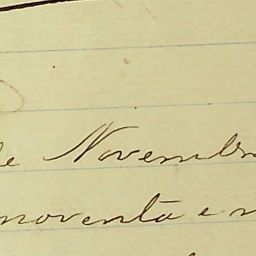 de Novembro
noventa e n